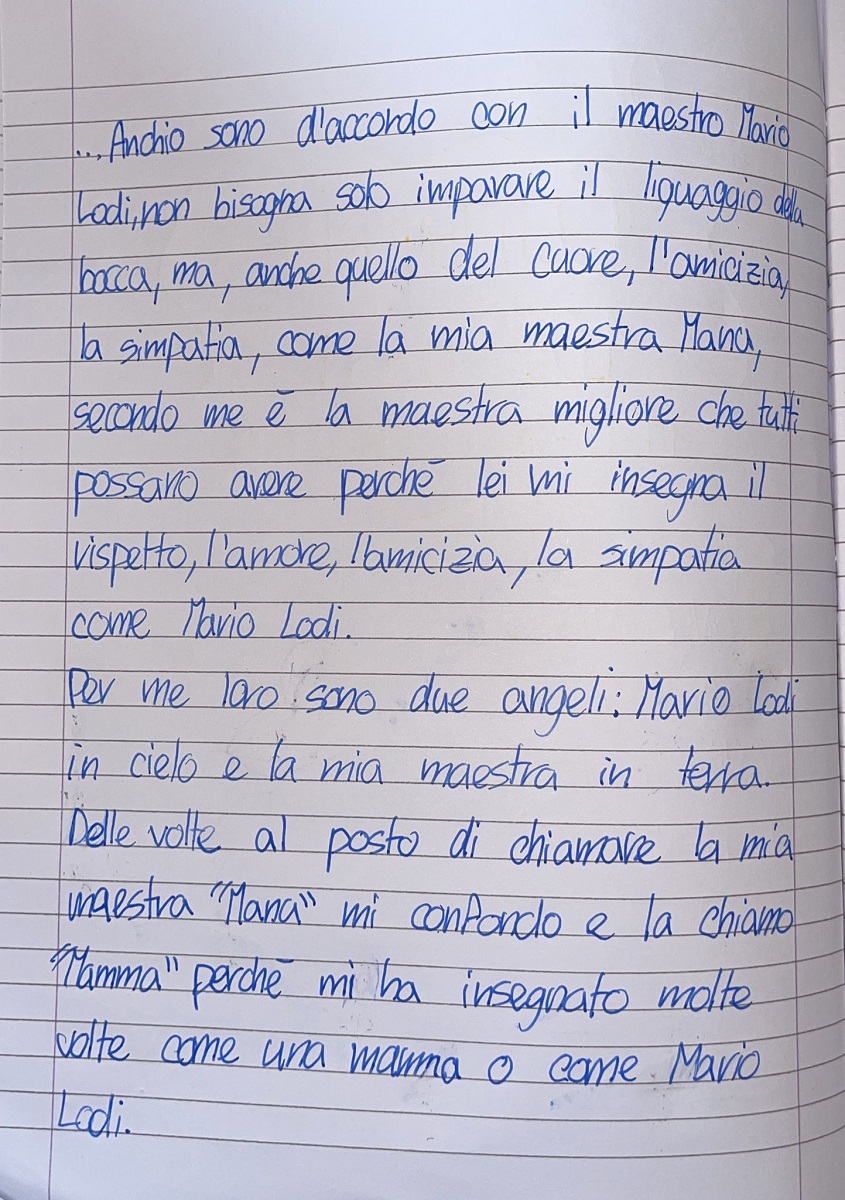 ...Anchio sono d'accordo con il maestro Mario
Lodi, non bisogna solo imparare il liguaggio della
bocca, ma, anche quello del cuore, l'amicizia,
la simpatia, come la mia maestra Mana,
secondo me è la maestra migliore che tutti
possano avere perchè lei mi insegna il
rispetto, l'amore, l'amicizia, la simpatia
come Mario Lodi.
Per me loro sono due angeli: Mario Lodi
in cielo e la mia maestra in terra.
Delle volte al posto di chiamare la mia
maestra "Mana" mi confondo e la chiamo
"Mamma" perchè mi ha insegnato molte
volte come una mamma o come Mario
Lodi.